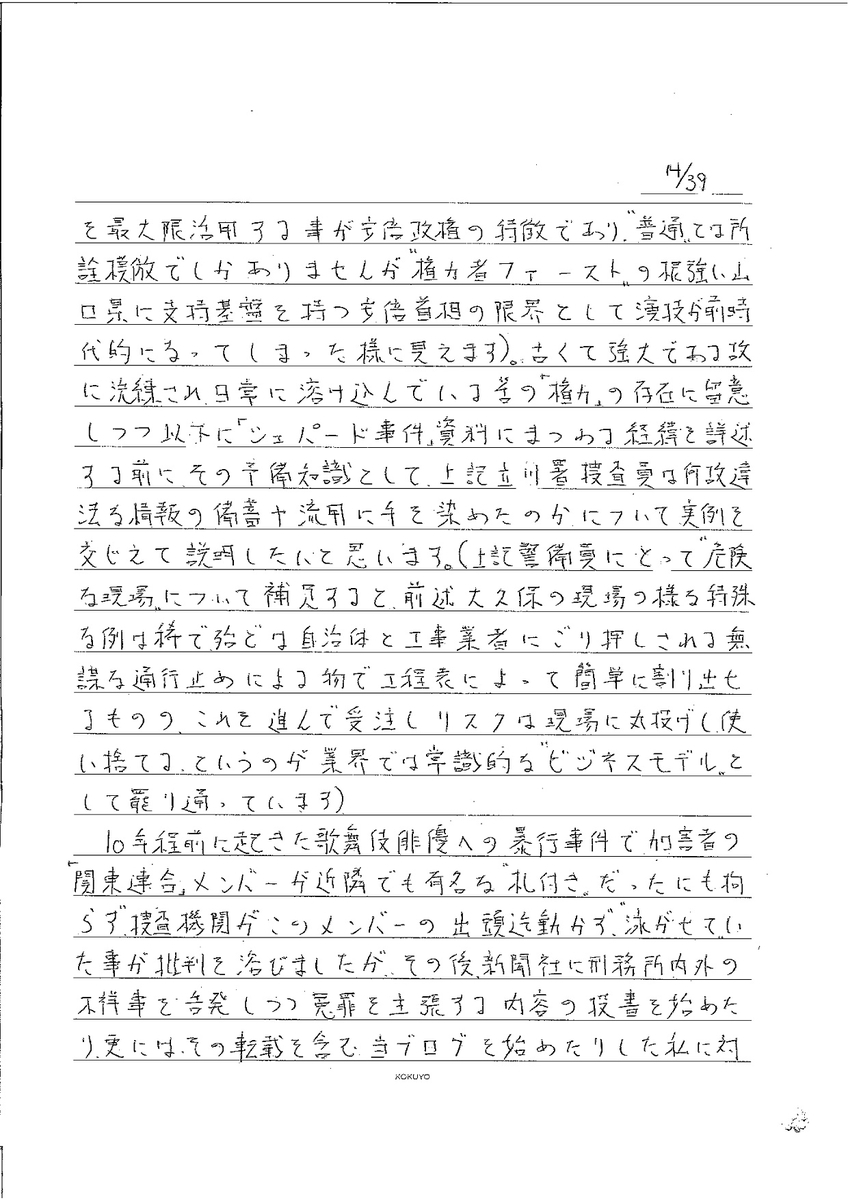 14/39
を最大限活用する事が安倍政権の特徴であり、"普通"では所
詮模倣でしかありませんが"権力者ファースト"の根強い山
口県に支持基盤を持つ安倍首相の限界として演技が前時
代的になってしまった様に見えます)。古くて強大である故
に洗練され、日常に溶け込んでいる筈の「権力」の存在に留意
しつつ以下に「シェパード事件」資料にまつわる経緯を詳述
する前に、その予備知識として、上記立川署捜査員は何故違
法な情報の備蓄や流用に手を染めたのかについて実例を
交じえて説明したいと思います。(上記警備員にとって"危険
な現場"について補足すると、前述大久保の現場の様な特殊
な例は稀で殆どは自治体と工事業者にごり押しされる無
謀な通行止めによる物で工程表によって簡単に割り出せ
るものの、これを進んで受注しリスクは現場に丸投げし、使
い捨てる、というのが業界では常識的な"ビジネスモデル"と
して罷り通っています)
10年程前に起きた歌舞伎俳優への暴行事件で加害者の
「関東連合」メンバーが近隣でも有名な"札付き"だったにも拘
らず、捜査機関がこのメンバーの出頭迄動かず、"泳がせて"い
た事が批判を浴びましたが、その後、新聞社に刑務所内外の
不祥事を告発しつつ冤罪を主張する内容の投書を始めた
り、更には、その転載を含む当ブログを始めたりした私に対
KOKUYO